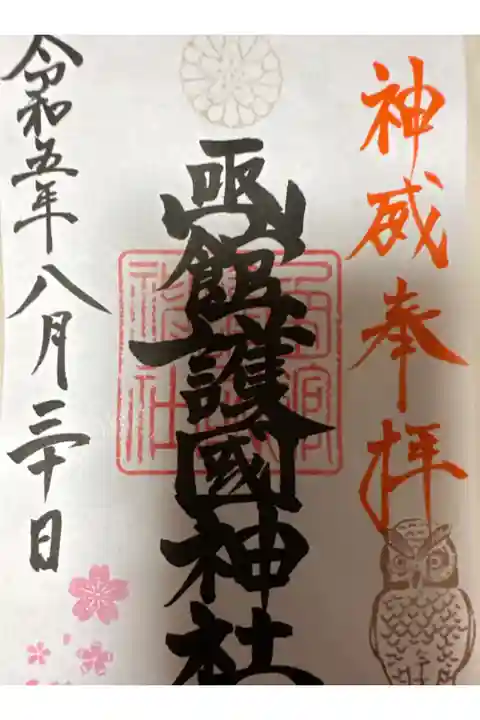 神威奉拝
函館護國神社
令和五年八月三十日